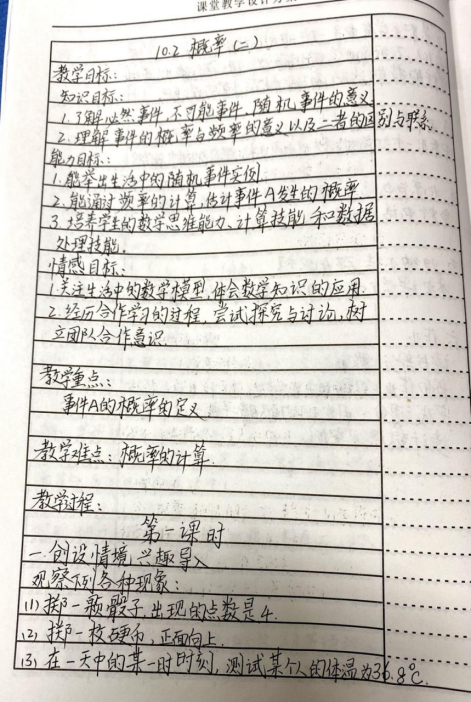 课堂教学设计方案
10.2 概率(二)
教学目标:
知识目标:
1.了解必然事件,不可能事件,随机事件的意义
2.理解事件的概率与频率的意义以及二者的区别与联系
能力目标:
1.能举出生活中的随机事件实例
2.能通过频率的计算,估计事件A发生的概率
3.培养学生的数学思维能力、计算技能和数据
处理技能.
情感目标:
1.关注生活中的数学模型,体会数学知识的应用.
2.经历合作学习的过程,尝试探究与讨论,树
立团队合作意识.
教学重点:
事件A的概率的定义
教学难点:概率的计算.
教学过程:
第一课时
一.创设情境 兴趣导入
观察下列各种现象:
(1)掷一颗骰子,出现的点数是4.
(2)掷一枚硬币,正面向上.
(3)在一天中的某一时时刻,测试某个人的体温为36.8℃.